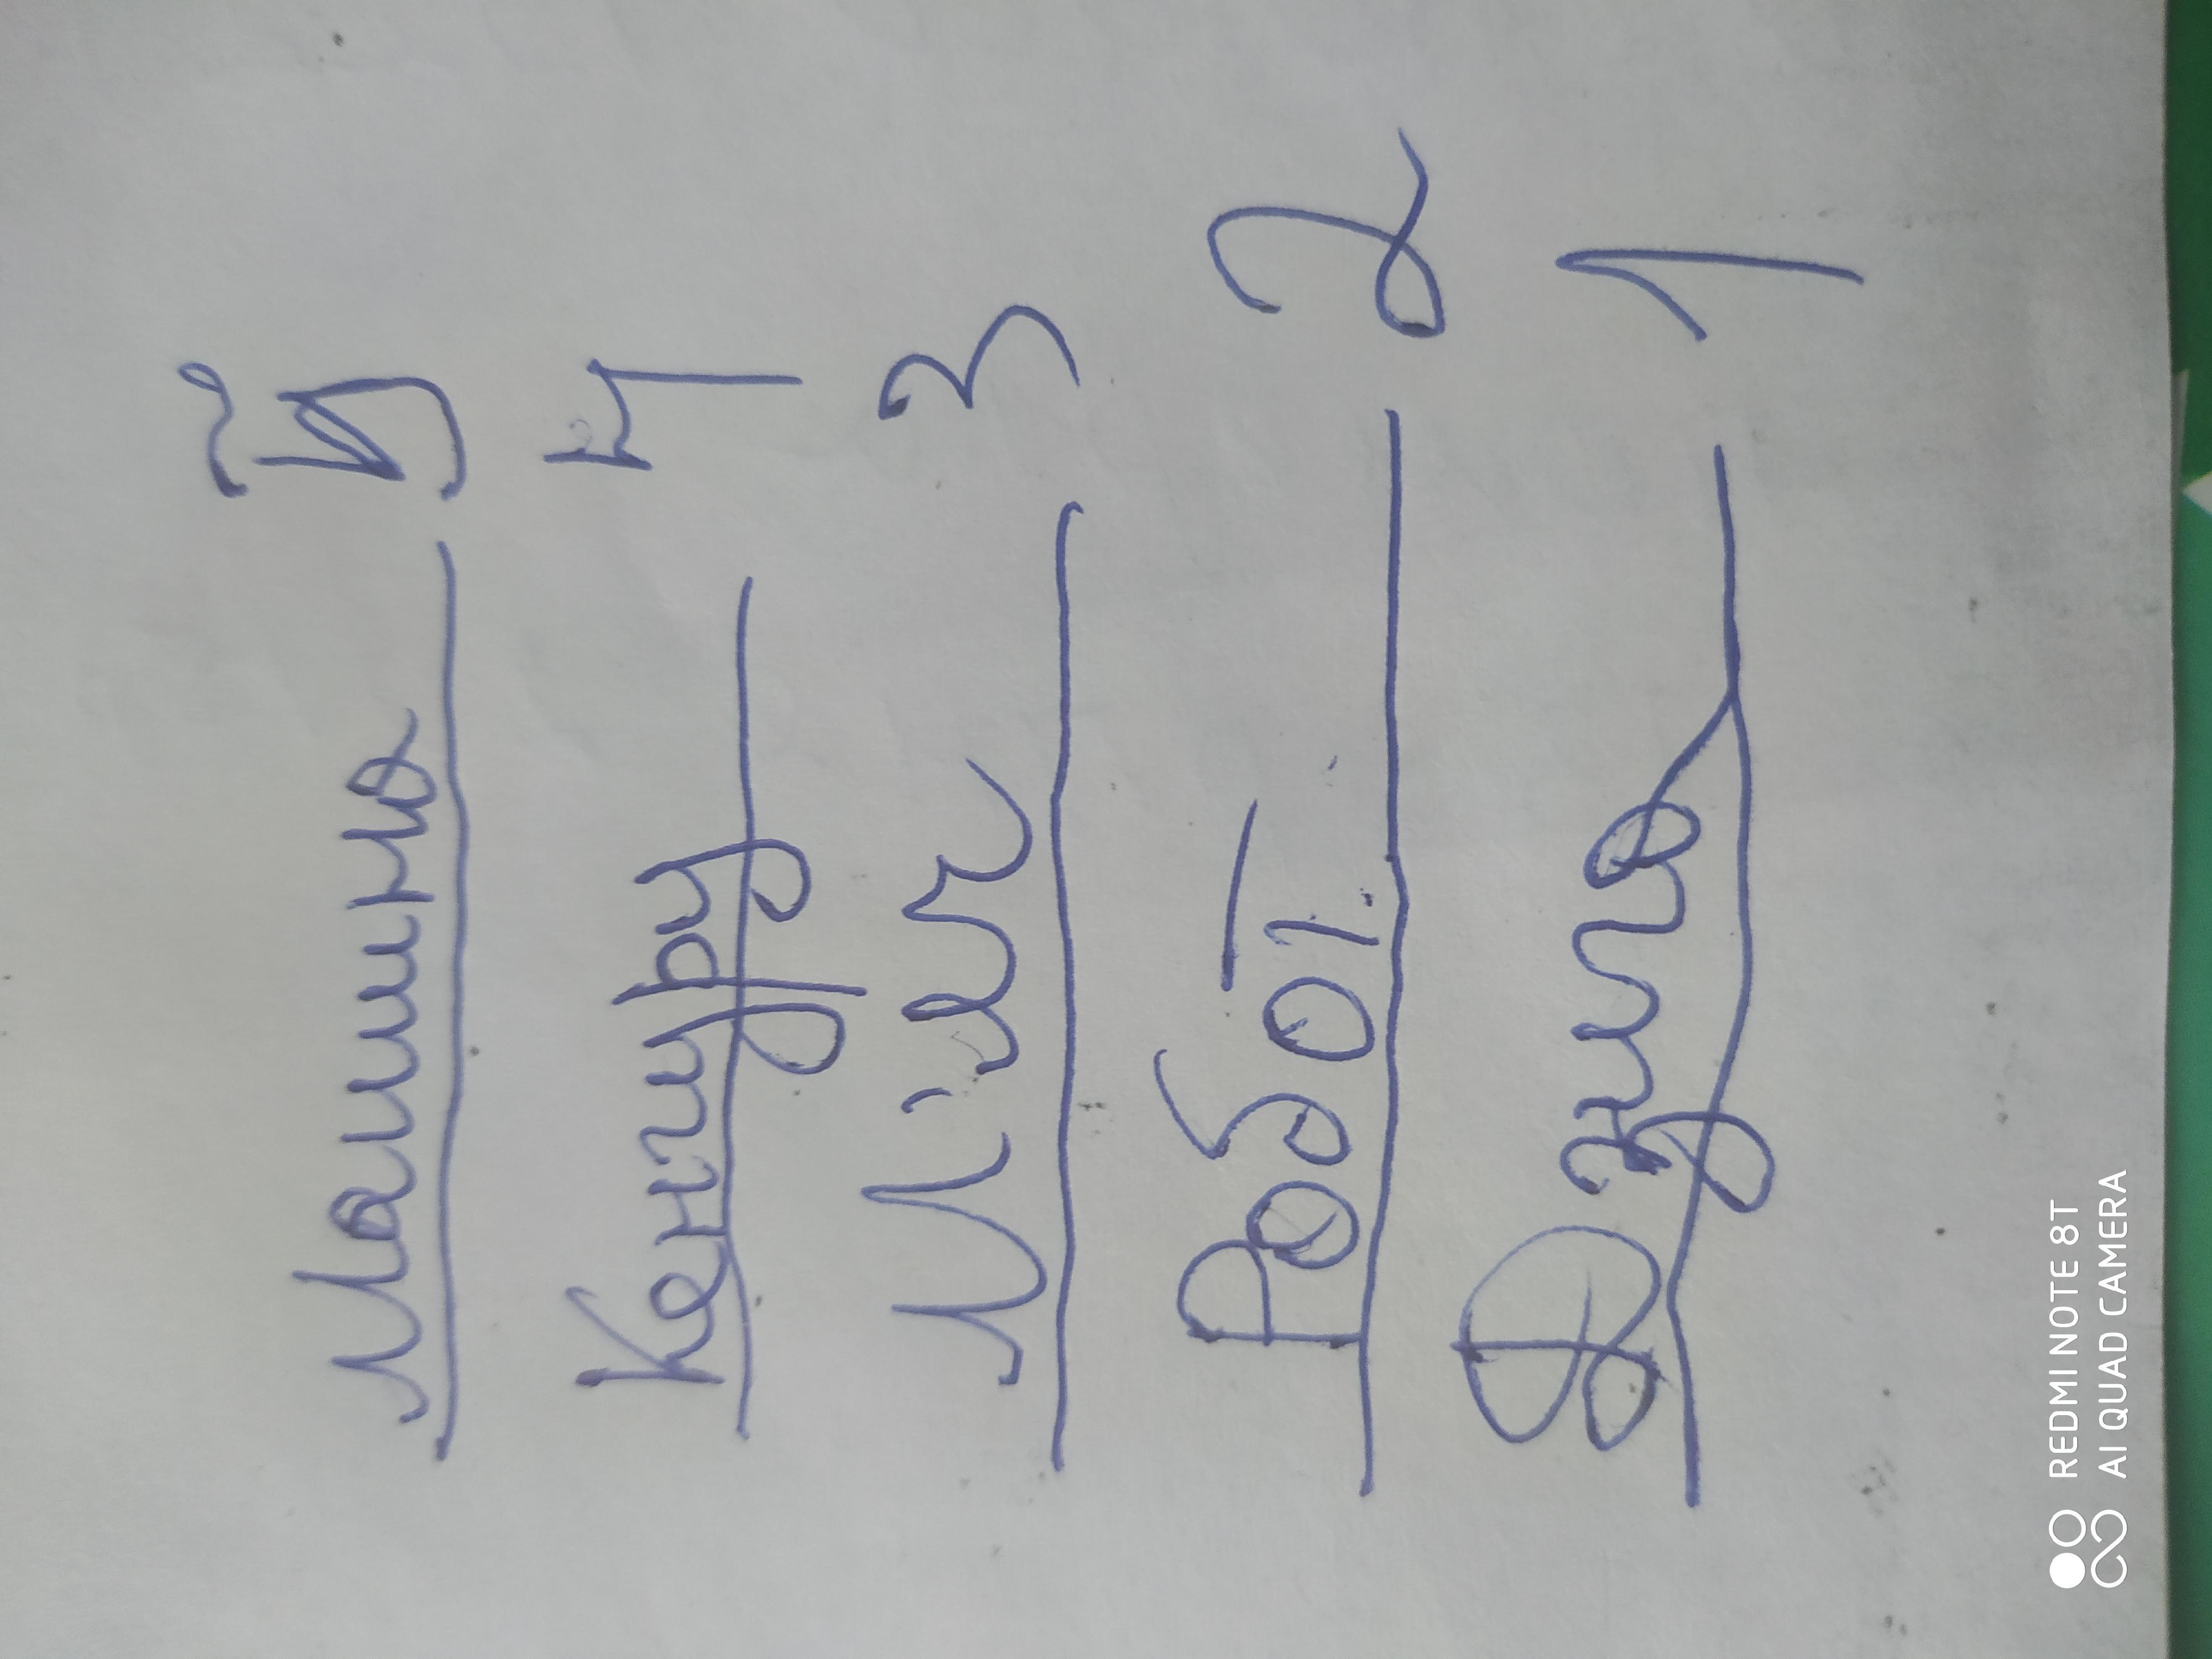 Машина 5
Кенгуру 4
М'яч 3
Робот 2
Дзига 1
REDMI NOTE 8T
AI QUAD CAMERA